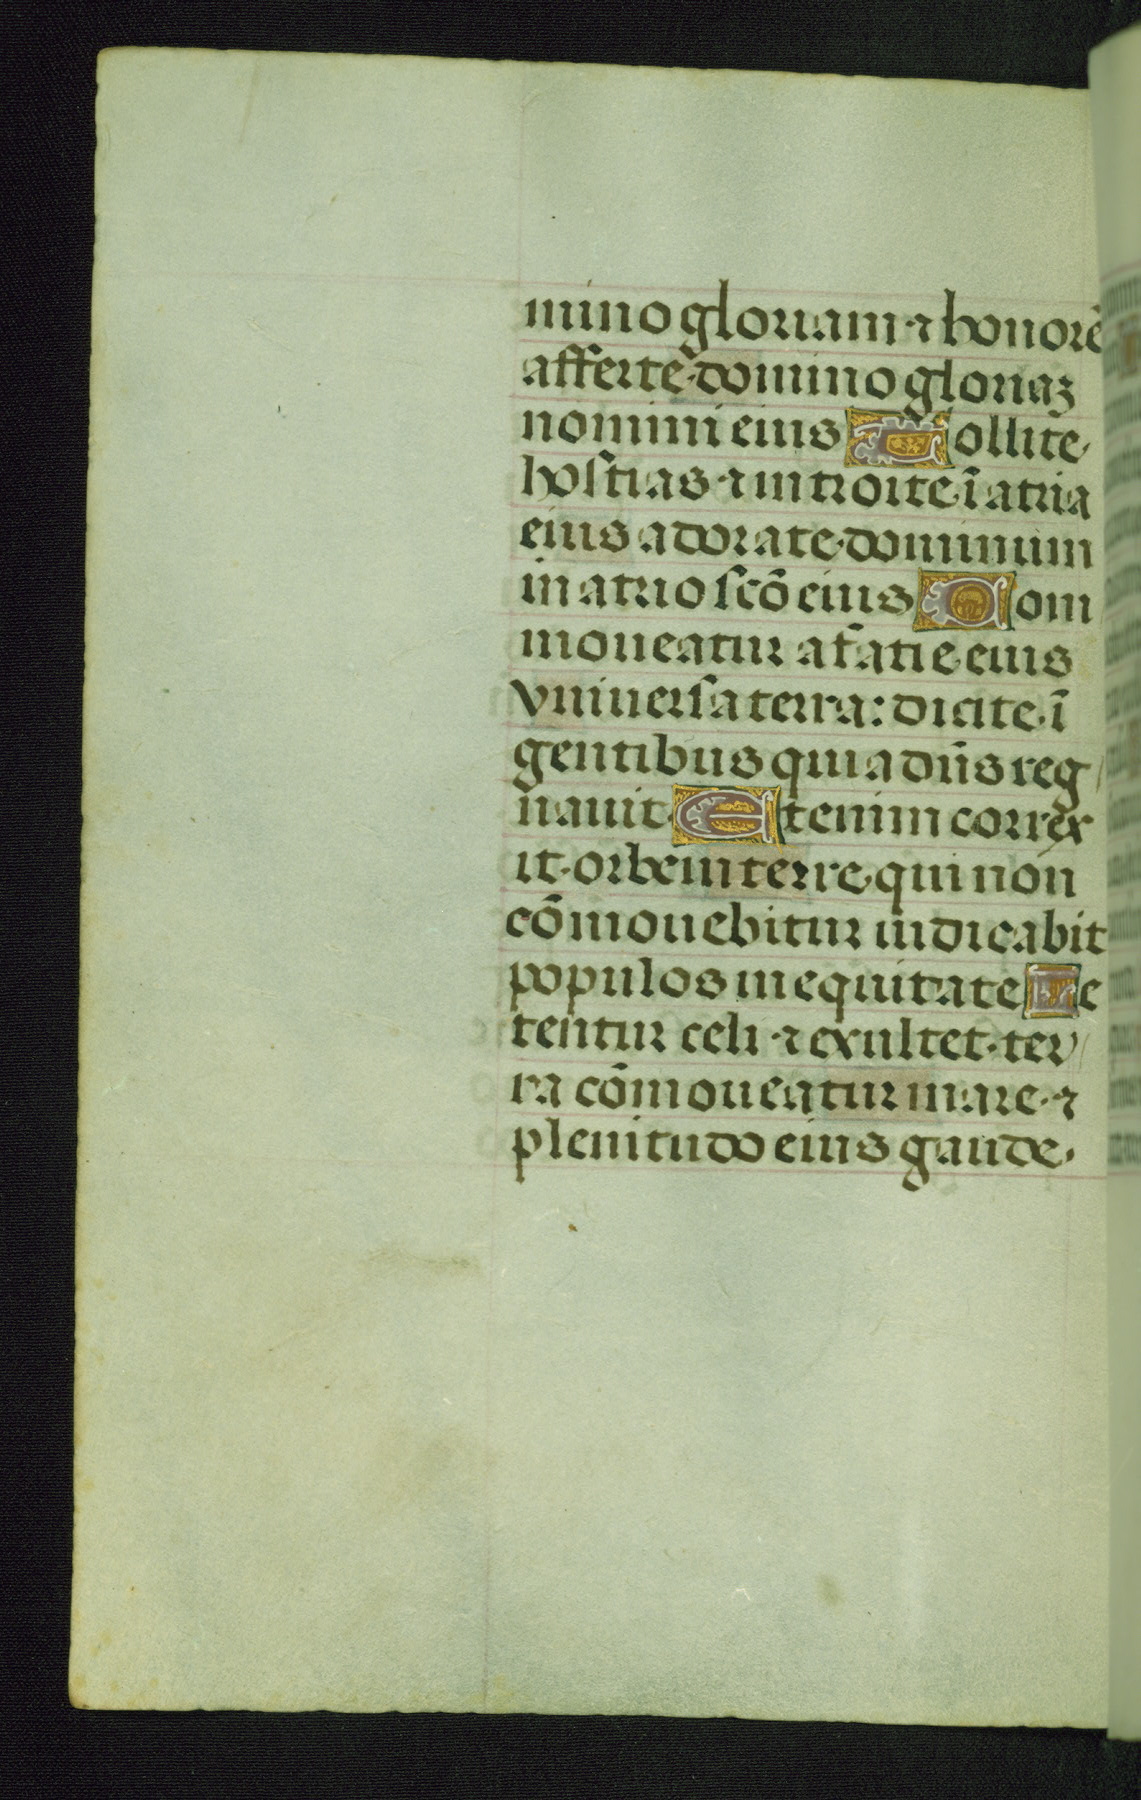 mino gloriam ⁊ honorē
afferte domino gloriaꝫ
nomini eius Tollite
hostias ⁊ introite ī atria
eius adorate dominum
in atrio scō eius Com
moueatur a facie eius
vniuersa terra: dicite ī
gentibus quia dn̄s reg
nauit Etenim correx
it orbem terre qui non
cōmouebitur iudicabit
populos in equitate Le
tentur celi ⁊ exultet ter
ra cōmoueatur mare ⁊
plenitudo eius gaude